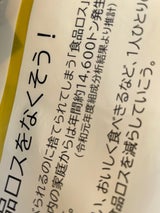 品ロスをなくそう!
べられるのに捨てられてしまう「食品ロス」
内の家庭からは年間約14,600トン発生
(令和元年度組成分析結果より推計)
おいしく食べきるなど、1人ひとり
品ロスを減らしていこう。